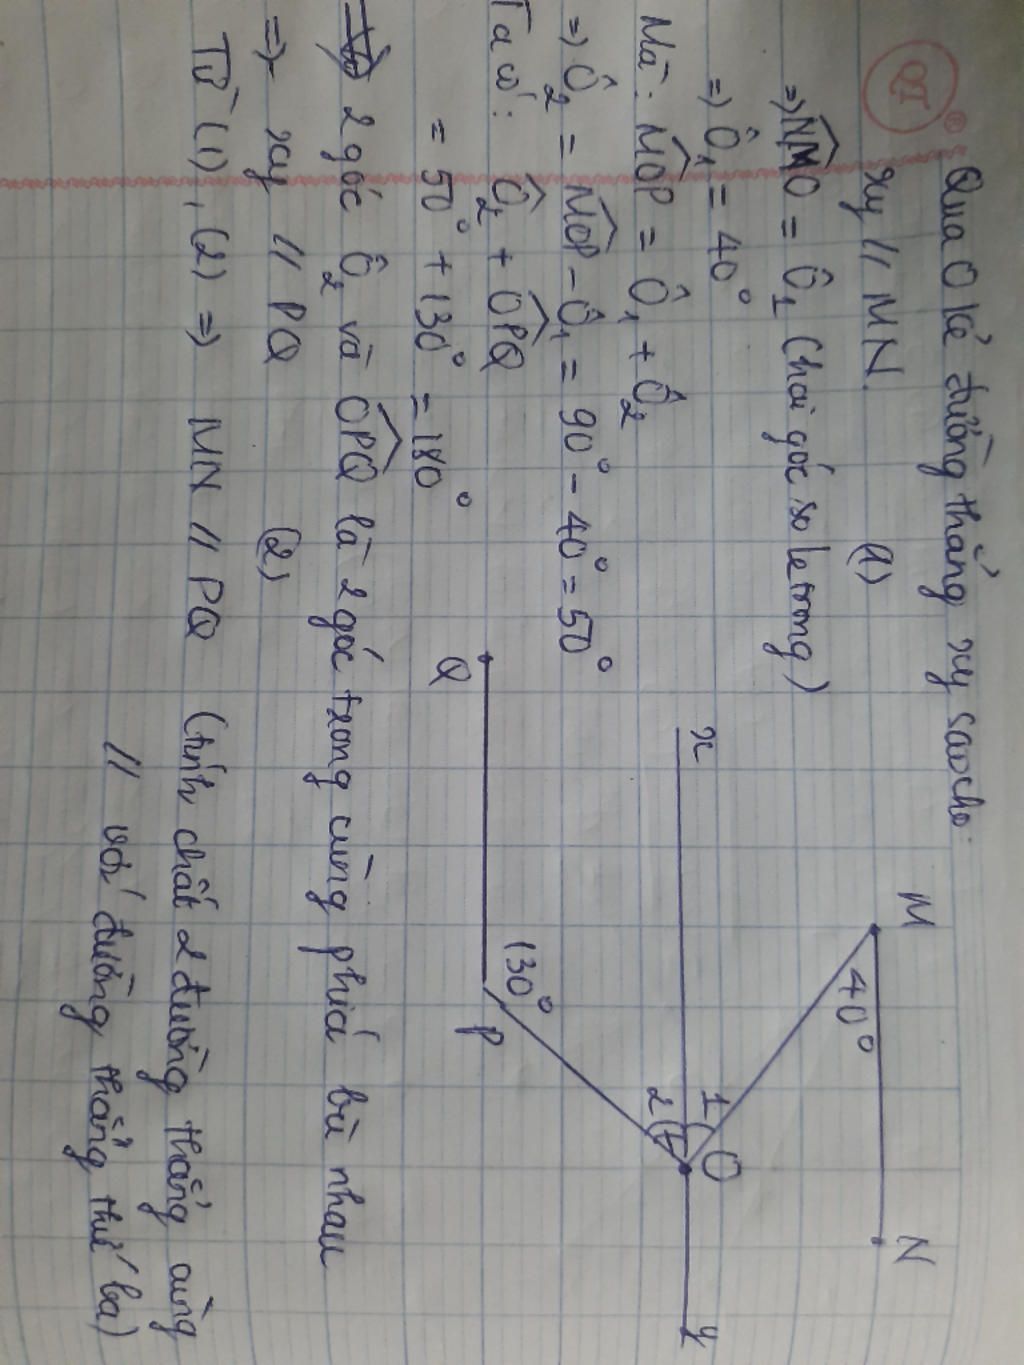 Qua O kẻ đường thẳng xy sao cho:
xy // MN. (1)
=> NMO = Ô1 (hai góc so le trong)
=> Ô1 = 40°
Mà: MOP = Ô1 + Ô2
=> Ô2 = MOP - Ô1 = 90° - 40° = 50°
Ta có: Ô2 + OPQ
= 50° + 130° = 180°
2 góc Ô2 và OPQ là 2 góc trong cùng phía bù nhau
=> xy // PQ (2)
Từ (1), (2) => MN // PQ (tính chất 2 đường thẳng cùng
// với đường thẳng thứ ba)
M
N
40°
x
1
O
2
y
130°
Q
P